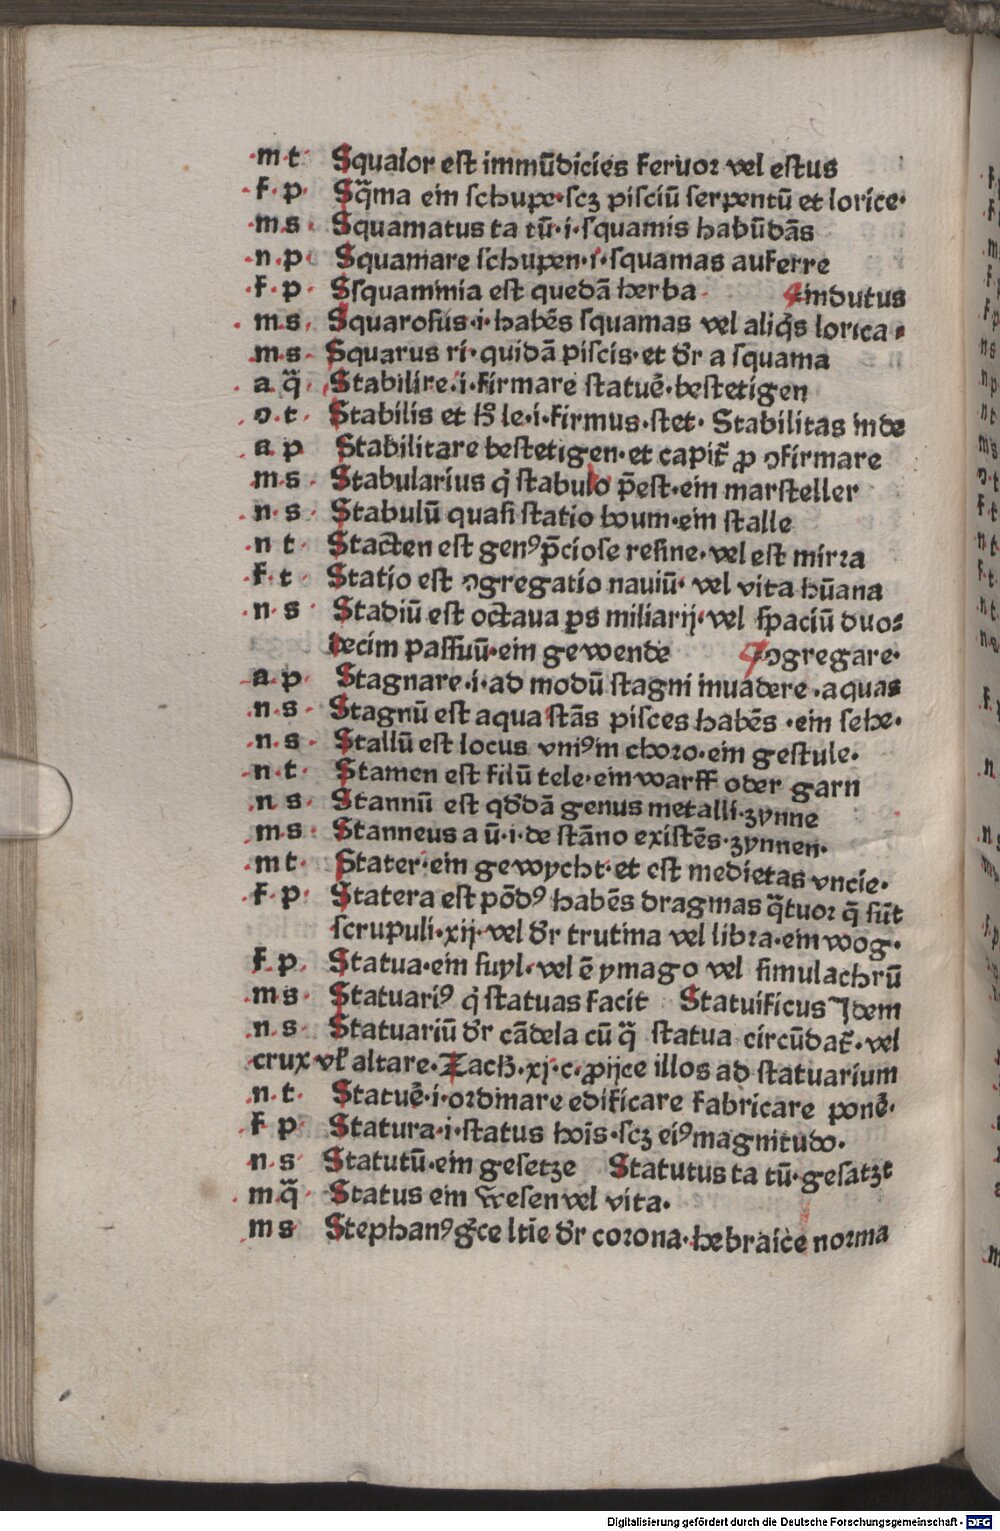 ·m·t· Squalor est immūdicies feruor vel estus
·f·p· Sq̄ma ein schupe·scꝫ pisciū serpentū et lorice·
·m·s· Squamatus ta tū·i·squamis habūdās
·n·p· Squamare schupen·i·squamas auferre
·f·p· Ssquaminia est quedā herba· ¶indutus
·m·s· Squarosus·i·habēs squamas vel aliq̄s lorica⸗
·m·s· Squarus ri·quidā piscis·et dr̄ a squama
·a q̄· Stabilire·i·firmare statuē·bestetigen
·o·t· Stabilis et hͦ le·i·firmus·stet· Stabilitas inde
·a p Stabilitare bestetigen·et capit̄ ꝓ ꝯfirmare
m·s· Stabularius q̇ stabulo p̄est·ein marsteller
·n·s· Stabulū quasi statio boum·ein stalle
·n t· Stacten est genꝰ p̄ciose resine·vel est mirra
·f·t Statio est ꝯgregatio nauiū· vel vita hūana
·n·s· Stadiū est octaua ꝑs miliarij·vel spaciū duo⸗
decim passuū·ein gewende ¶ꝯgregare·
·a·p· Stagnare·i·ad modū stagni inuadere·aquas
·n·s· Stagnū est aqua stās pisces habēs·ein sehe·
·n·s· Stallū est locus vniꝰ in choro·ein gestule·
·n·t· Stamen est filū tele·ein warff oder garn
·n s· Stannū est qd̄dā genus metalli·zynne
·m s· Stanneus a ū·i·de stāno existēs·zynnen·
·m t· Stater·ein gewycht·et est medietas vncie·
·f·p· Statera est pōdꝰ habēs dragmas q̄tuor q̄ sūt
scrupuli·xij·vel dr̄ trutina vel libra·ein wog·
f·p· Statua·ein suyl·vel ē ymago vel simulachrū
·m s· Statuariꝰ q̇ statuas facit Statuificus Idem
·n·s· Statuariū dr̄ cādela cū q̄ statua circūdat̄·vel
crux vl̓ altare·Zach̄·xj·c·ꝓijce illos ad statuarium
·n·t· Statuē·i·ordinare edificare fabricare ponē·
·f·p· Statura·i·status hoīs·scꝫ eiꝰ magnitudo·
·n·s Statutū·ein gesetze Statutus ta tū·gesatzt
·m q̄· Status ein wesen vel vita·
·m s Stephanꝰ gͨce ltīe dr̄ corona·hebraice norma
Digitalisierung gefördert durch die Deutsche Forschungsgemeinschaft · DFG